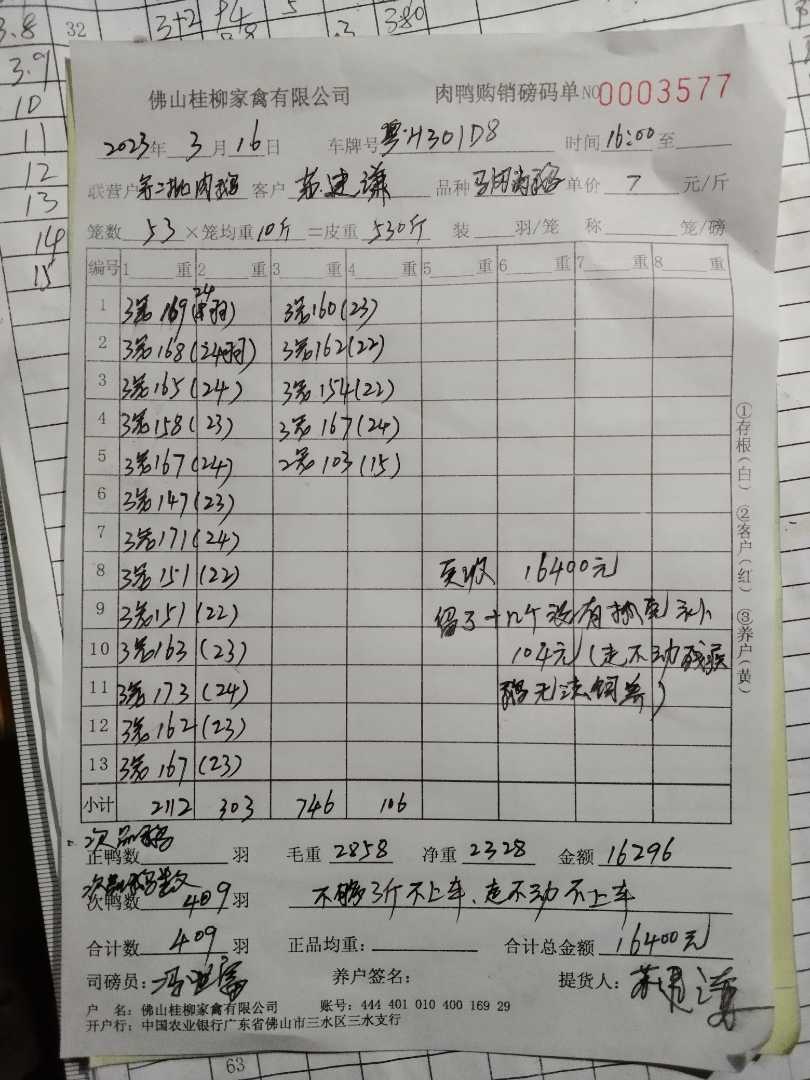 3.8 32 3+2 5 .3 380
3.9
10
11
12
13
14
15
佛山桂柳家禽有限公司 肉鸭购销磅码单 NO 0003577
2023年 3月16日 车牌号 粤H301D8 时间16:00至
联营户 客户 单价 7 元/斤 品种
笼数 53 ×笼均重10斤 =皮重 530斤 装 羽/笼 称 笼/磅
编号 1 重 2 重 3 重 4 重 5 重 6 重 7 重 8 重
1 3笼169(24羽) 3笼160(23)
2 3笼168(24羽) 3笼162(22)
3 3笼165(24) 3笼154(22)
4 3笼158(23) 3笼167(24)
5 3笼167(24) 2笼103(15)
6 3笼147(23)
7 3笼171(24)
8 3笼151(22) 实收 16400元
9 3笼151(22) 留了十几个没有抓
10 3笼163(23) 104元(走不动残疾
11 3笼173(24) 鸭无法饲养)
12 3笼162(23)
13 3笼167(23)
小计 2112 303 746 106
次品鸭
正鸭数 羽 毛重 2858 净重 2328 金额 16296
次鸭数 409 羽 不够3斤不上车、走不动不上车
合计数 409 羽 正品均重: 合计总金额 16400元
司磅员: 养户签名: 提货人:
户 名: 佛山桂柳家禽有限公司 账号: 444 401 010 400 169 29
开户行: 中国农业银行广东省佛山市三水区三水支行
①存根(白) ②客户(红) ③养户(黄)
63